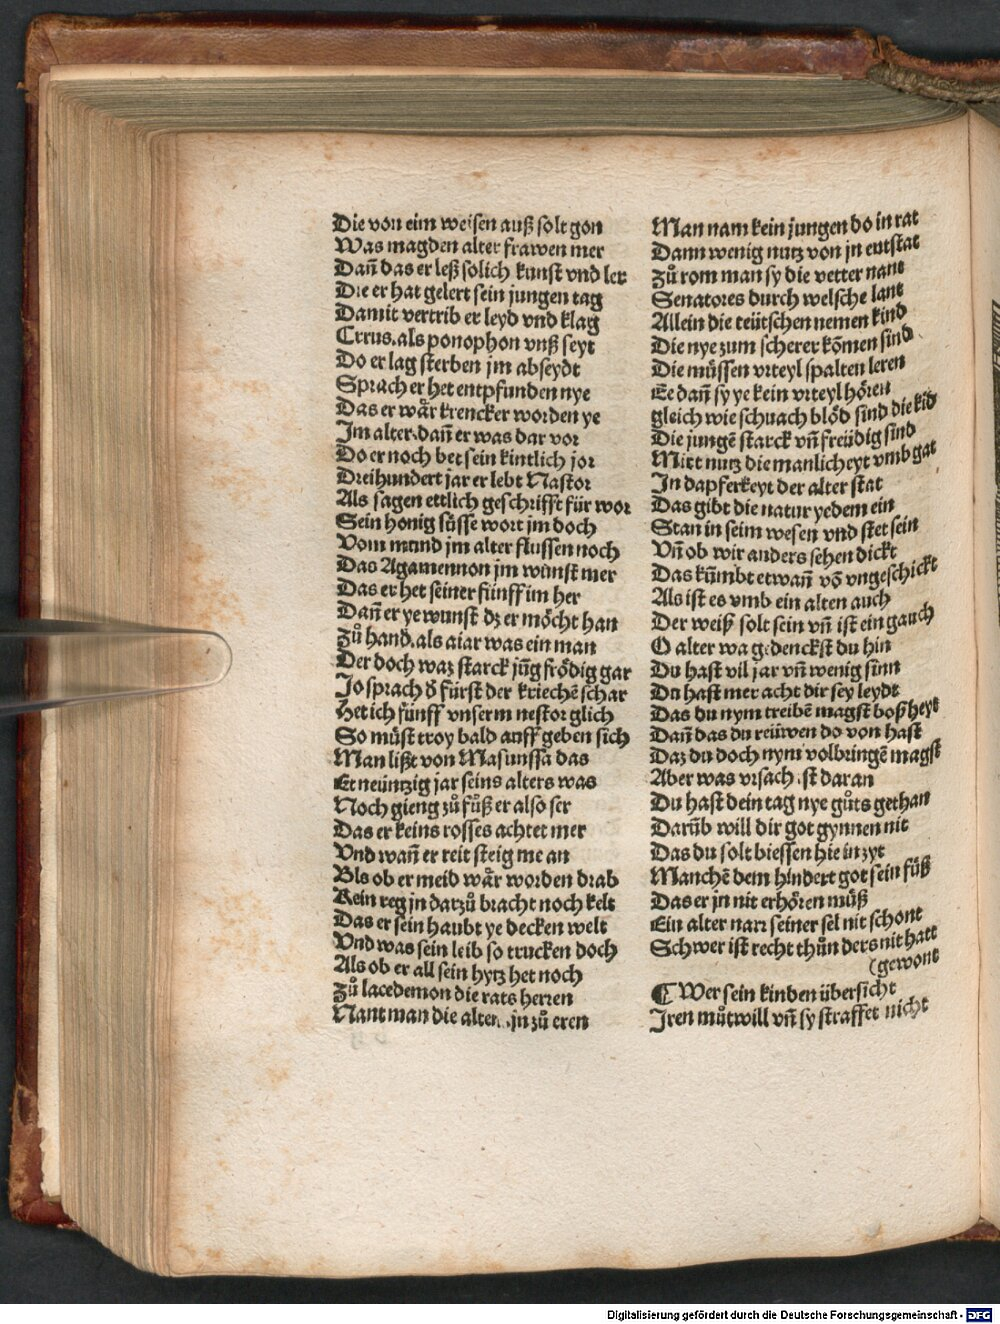 Die von eim weisen auß solt gon
Was magden alter frawen mer
Dañ das er leß solich kunst vnd ler
Die er hat gelert sein jungen tag
Damit vertrib er leyd vnd klag
Cirus.als ponophon vnß seyt
Do er lag sterben jm abseydt
Sprach er het entpfunden nye
Das er wår krencker worden ye
Jm alter.dañ er was dar vor
Do er noch het sein kintlich jor
Dreihundert jar er lebt Nastor
Als sagen ettlich geschrifft für wor
Sein honig süsse wort jm doch
Vom mund jm alter flussen noch
Das Agamennon jm wunst mer
Das er het seiner fünff im her
Dañ er ye wunst dz er möcht han
Zů hand.als aiax was ein man
Der doch waz starck jūg frödig gar
Jo sprach d̄ fürst der kriechē schar
Het ich fünff vnserm nestor glich
So müst troy bald auff geben sich
Man lißt von Masunssa das
Er neüntzig jar seins alters was
Noch gieng zů fůß er also ser
Das er keins rosses achtet mer
Vnd wañ er reit steig me an
Bls ob er meid wår worden drab
Kein reg jn datzů bracht noch kelt
Das er sein haubt ye decken welt
Vnd was sein leib so trucken doch
Als ob er all sein hytz het noch
Zů lacedemon die rats herren
Nant man die alten .jn zů eren
Man nam kein jungen do in rat
Dann wenig nutz von jn entstat
Zů rom man sy die vetter nant
Senatores durch welsche lant
Allein die teütschen nemen kind
Die nye zum scherer kōmen sind
Die müssen vrteyl spalten leren
Ee dañ sy ye kein vrteyl hören
gleich wie schwach blöd sind die kīd
Die jungē starck vñ freüdig sind
Mitt nutz die manlicheyt vmb gat
Jn dapferkeyt der alter stat
Das gibt die natur yedem ein
Stan in seim wesen vnd stet sein
Vñ ob wir anders sehen dickt
Das kūmbt etwañ vō vngeschickt
Als ist es vmb ein alten auch
Der weiß solt sein vñ ist ein gauch
O alter wa gedenckst du hin
Du hast vil jar vñ wenig sinn
Du hast mer acht dir sey leydt
Das du nym treibē magst boßheyt
Dañ das du reüwen do von hast
Daz du doch nym volbringē magst
Aber was vrsach ist daran
Du hast dein tag nye gůts gethan
Darūb will dir got gynnen nit
Das du solt biessen hie in zyt
Manchē dem hindert got sein füß
Das er jn nit erhören můß
Ein alter narr seiner sel nit schont
Schwer ist recht thůn ders nit hatt
(gewont
¶ Wer sein kinden übersicht
Jren můtwill vñ sy straffet nicht
Digitalisierung gefördert durch die Deutsche Forschungsgemeinschaft - DFG